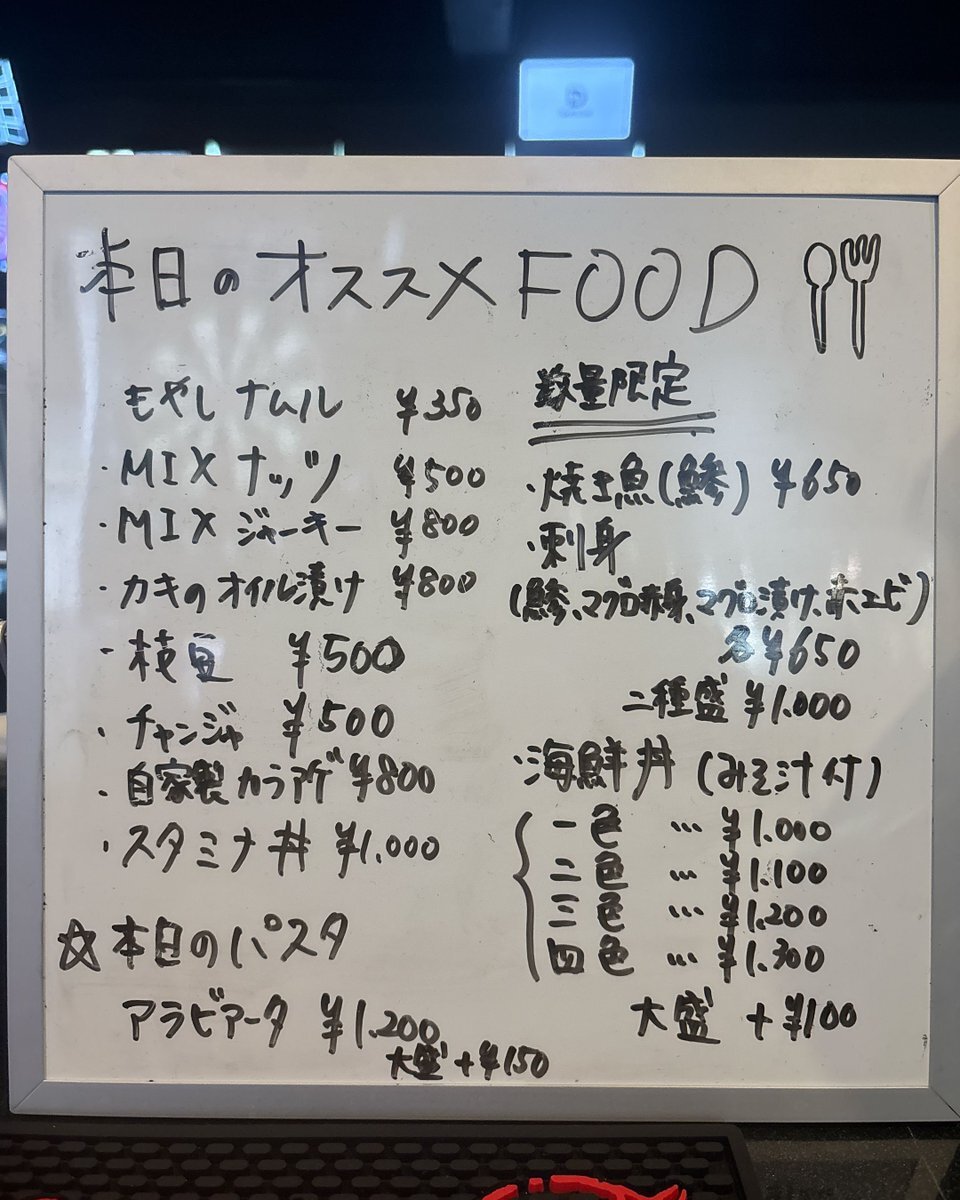 本日のオススメ FOOD
もやしナムル ¥350
・MIX ナッツ ¥500
・MIX ジャーキー ¥800
・カキのオイル漬け ¥800
・枝豆 ¥500
・チャンジャ ¥500
・自家製カラアゲ ¥800
・スタミナ丼 ¥1.000
☆本日のパスタ
アラビアータ ¥1.200
大盛 +¥150
数量限定
・焼き魚(鯵) ¥650
・刺身
(鯵、マグロ赤身、マグロ漬け、赤エビ)
各¥650
二種盛 ¥1.000
・海鮮丼 (みそ汁付)
一色 … ¥1.000
二色 … ¥1.100
三色 … ¥1.200
四色 … ¥1.300
大盛 +¥100